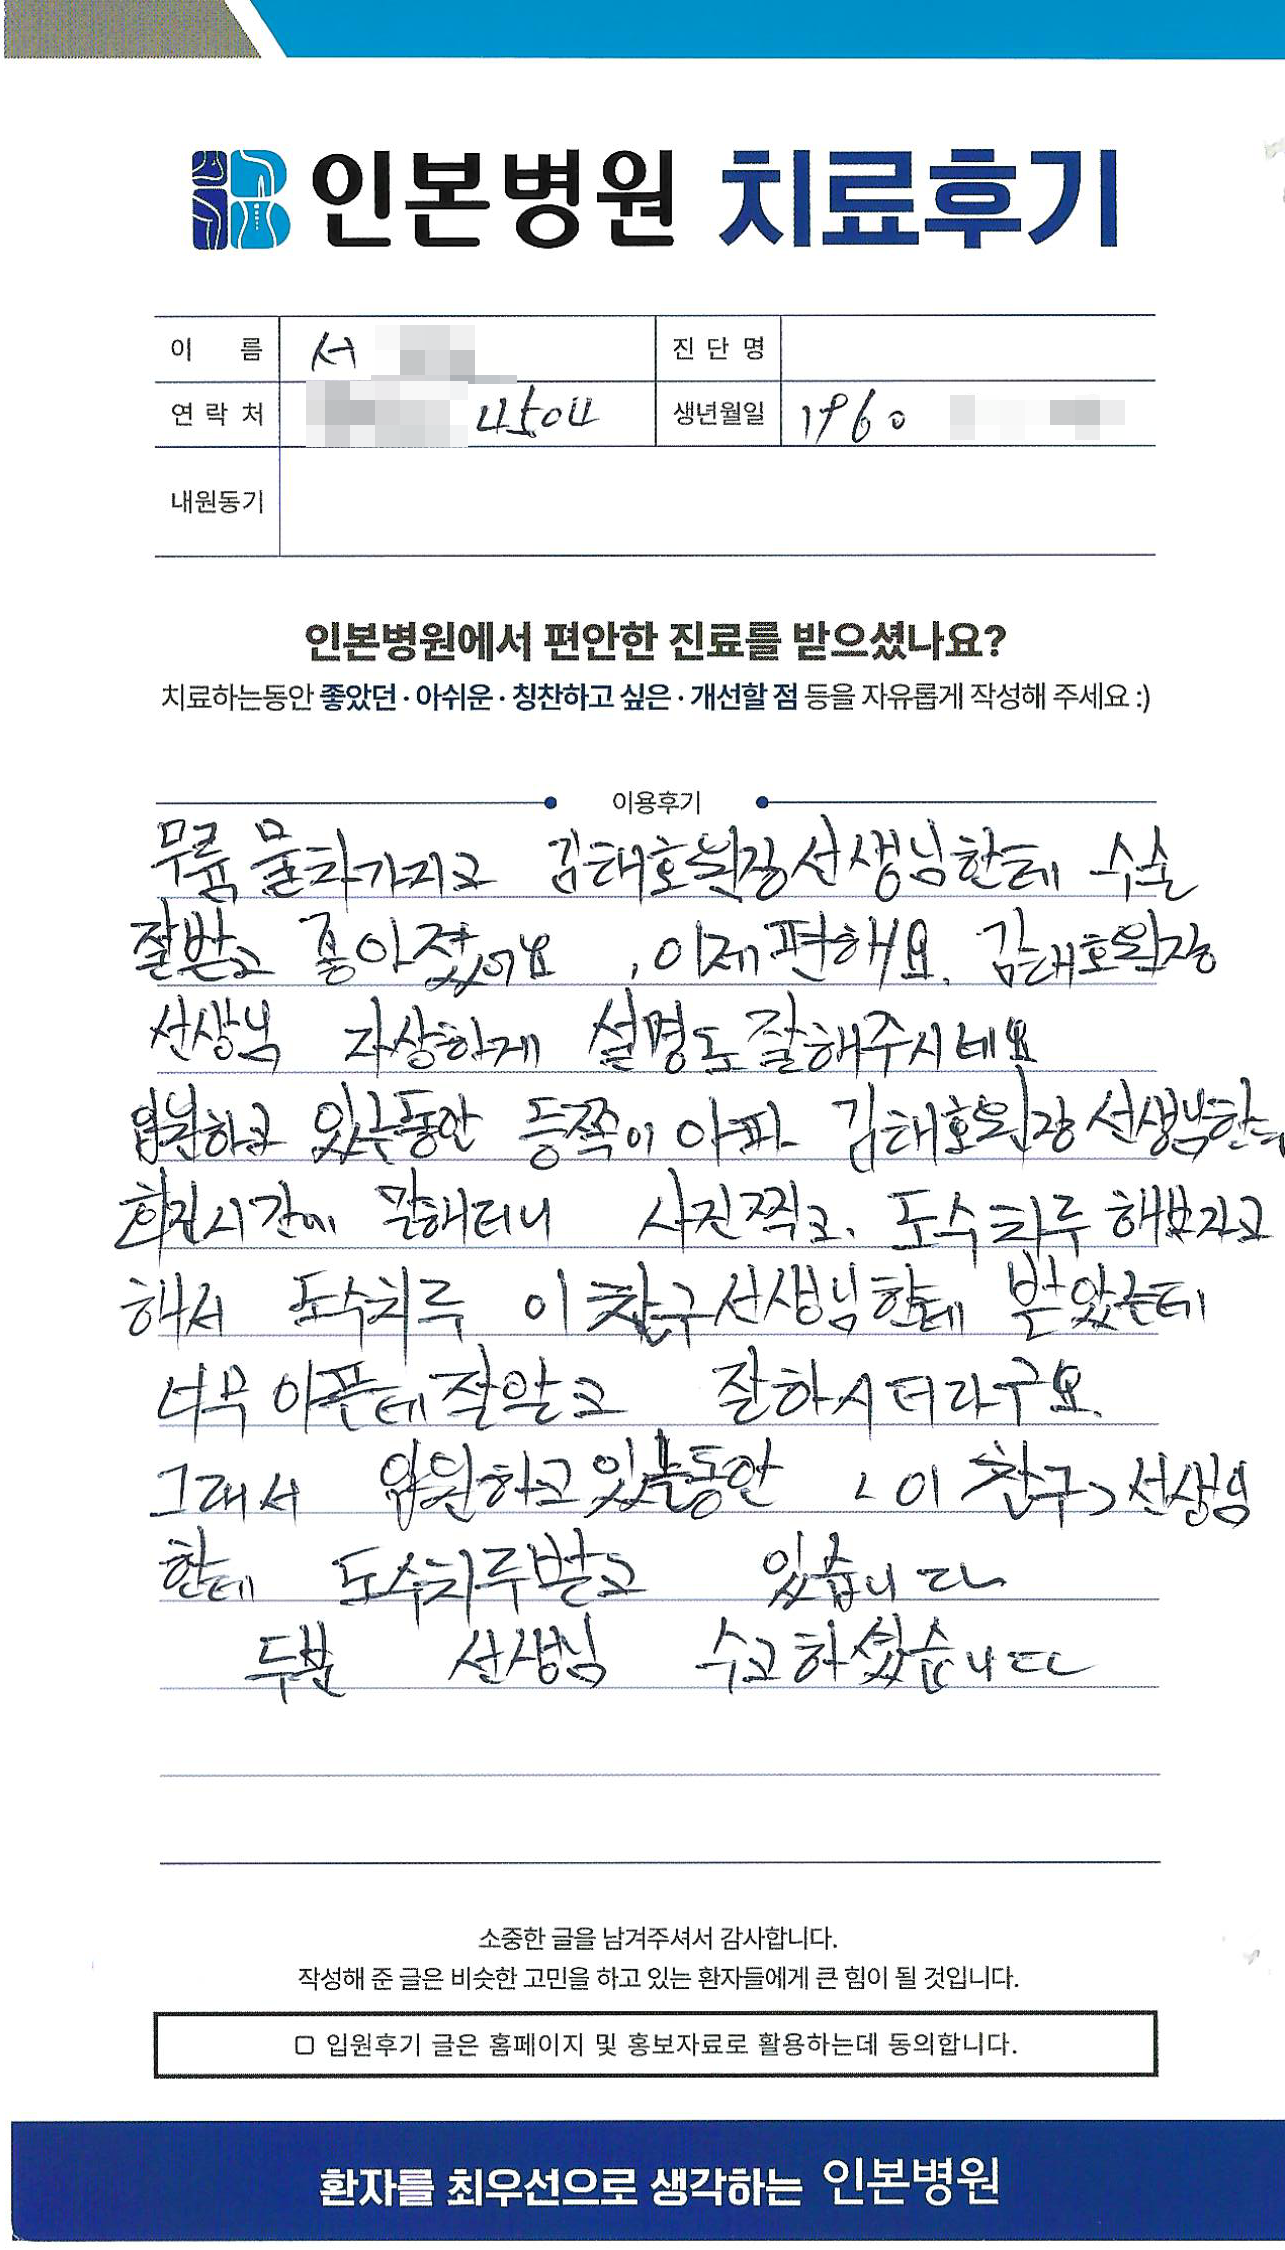 인본병원 치료후기
이 름 서 진 단 명
연 락 처 4504 생년월일 1960
내원동기
인본병원에서 편안한 진료를 받으셨나요?
치료하는동안 좋았던 · 아쉬운 · 칭찬하고 싶은 · 개선할 점 등을 자유롭게 작성해 주세요 :)
이용후기
무릎 물차가지고 김태호원장선생님한테 수술
잘받고 좋아졌어요 , 이제편해요. 김태호원장
선상님 자상하게 설명도 잘해주시네요
입원하고 있는동안 등쪽이 아파 김태호원장선생님한테
회진시간에 말해더니 사진찍고. 도수치루 해보자고
해서 도수치루 이찬구선생님한테 받았는데
너무 아픈데 잘알고 잘하시더라구요.
그래서 입원하고있는동안 <이찬구>선상님
한테 도수치루받고 있습니다
두분 선생님 수고하셨습니다
소중한 글을 남겨주셔서 감사합니다.
작성해 준 글은 비슷한 고민을 하고 있는 환자들에게 큰 힘이 될 것입니다.
□ 입원후기 글은 홈페이지 및 홍보자료로 활용하는데 동의합니다.
환자를 최우선으로 생각하는 인본병원